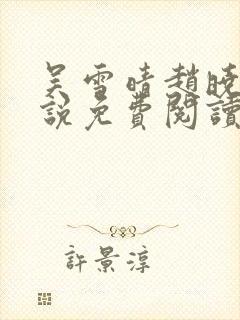 吴雪晴趙曉
說免費閱讀
許景淳